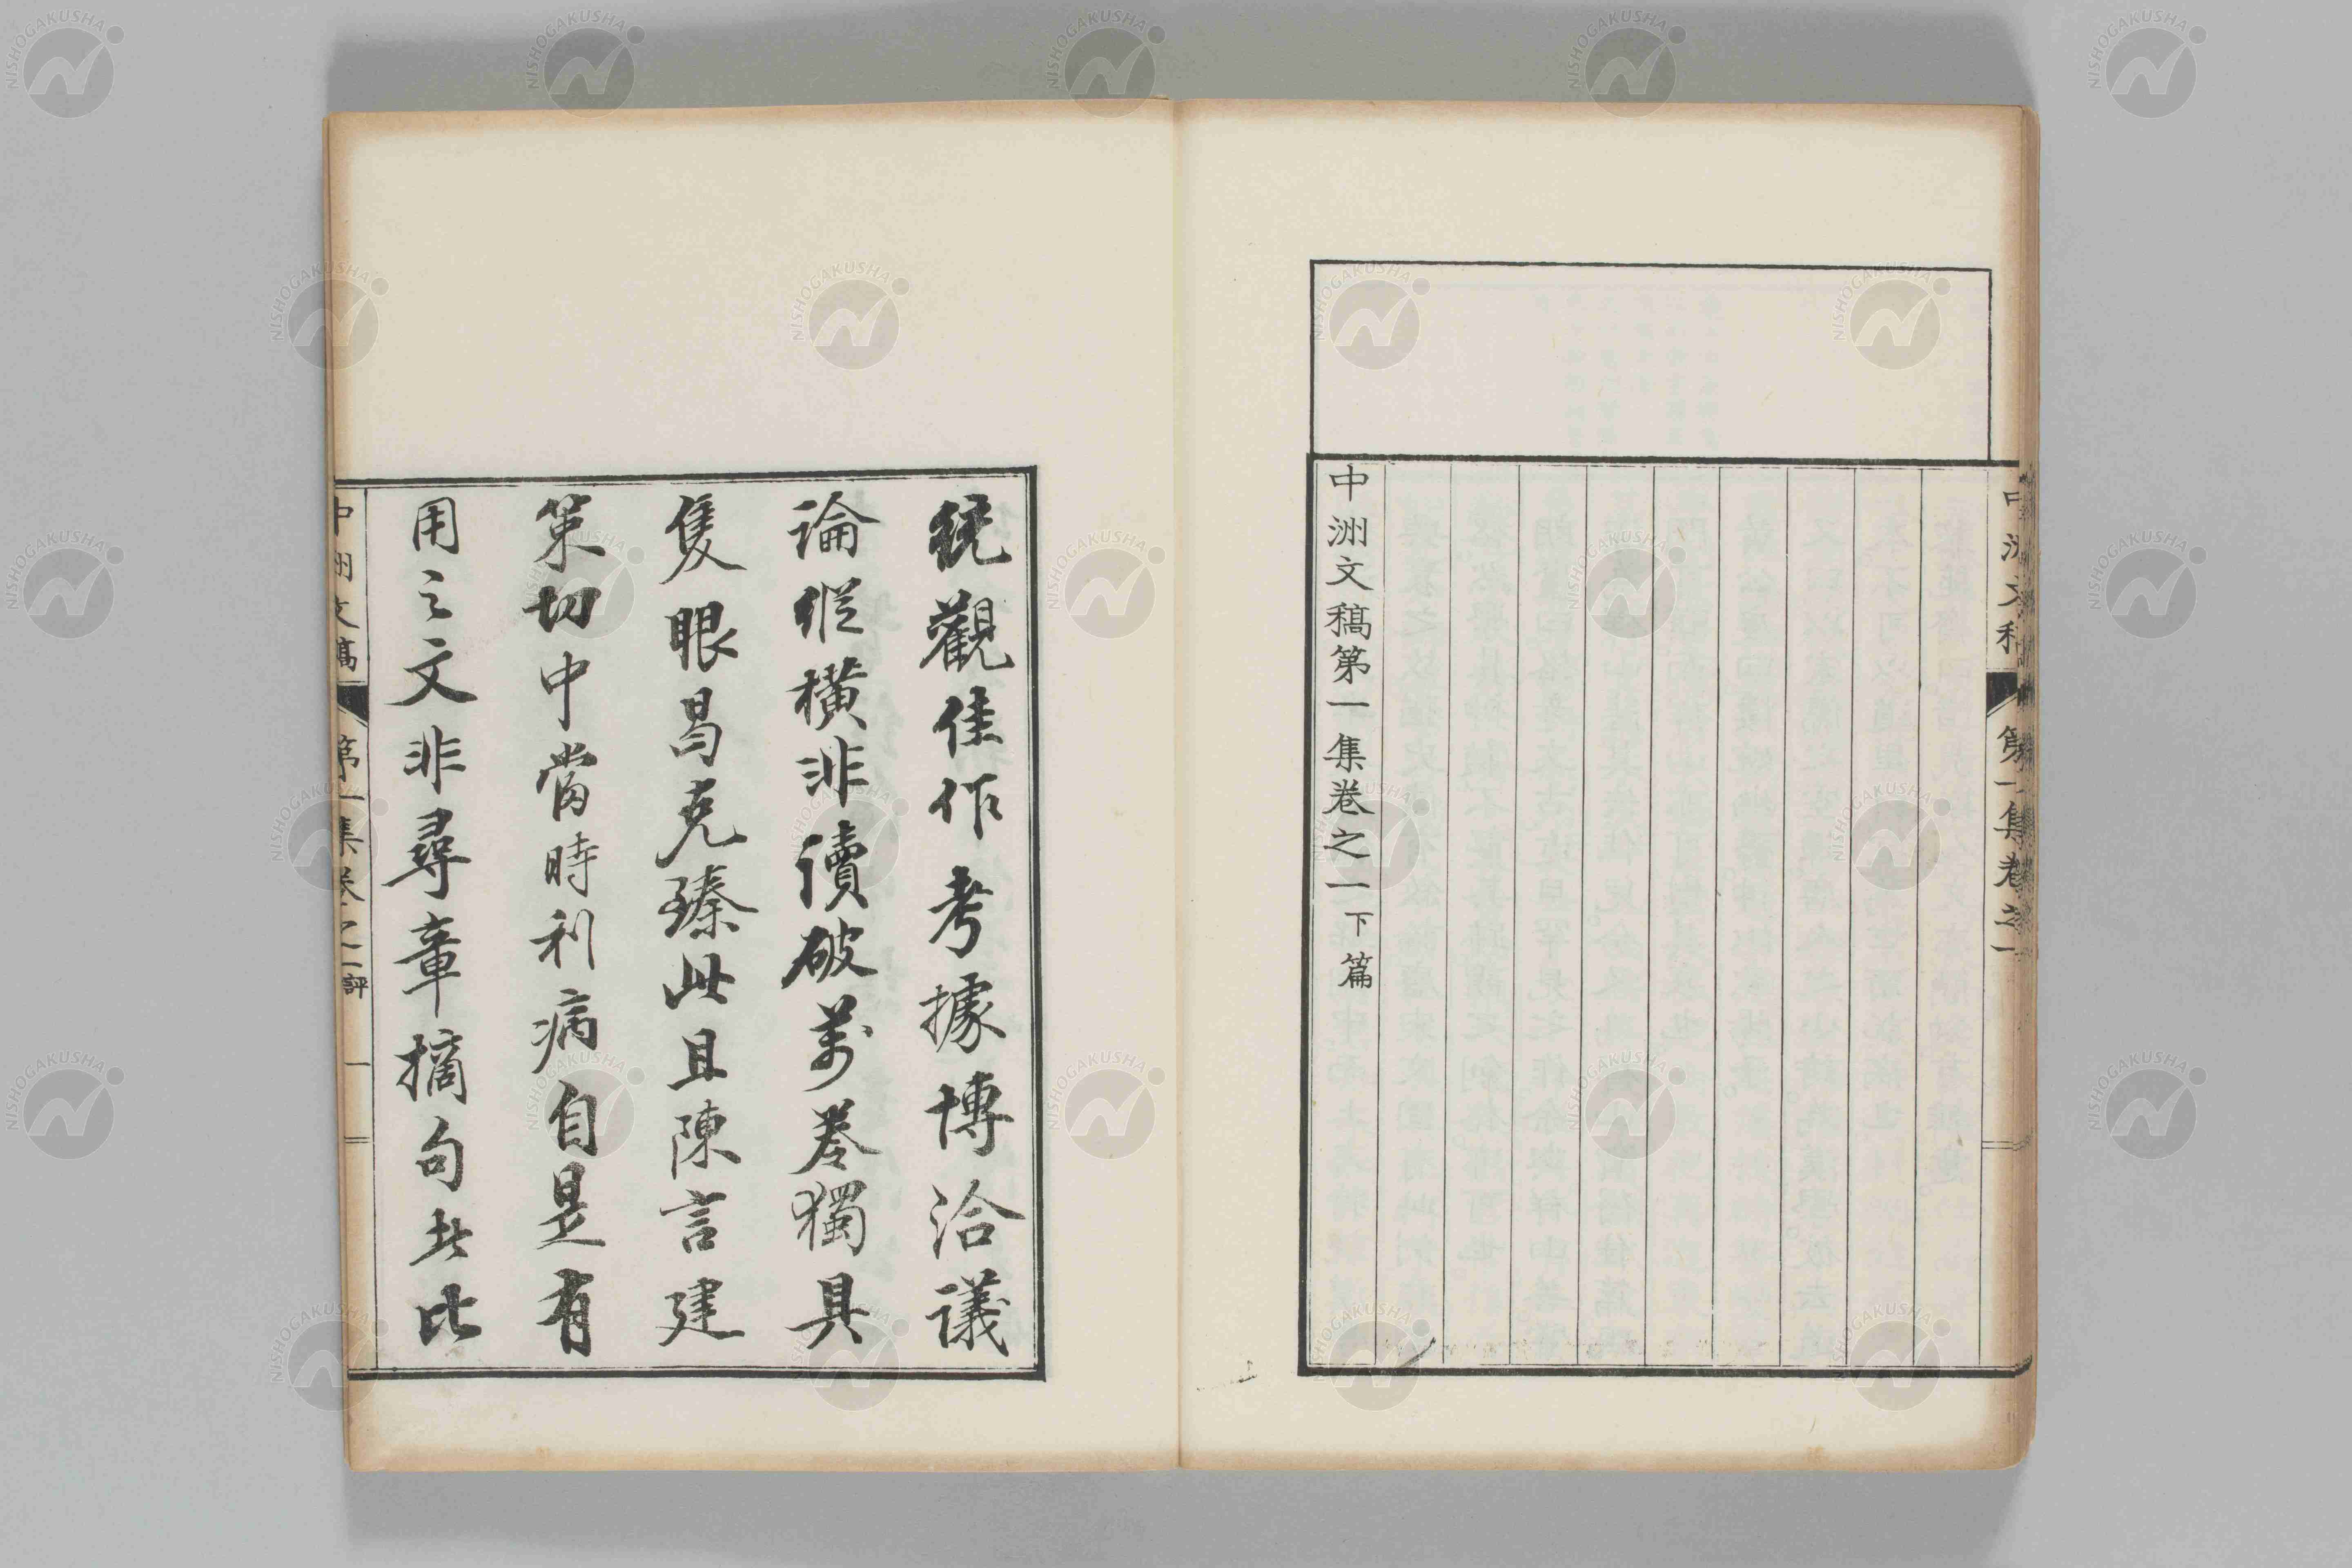 中洲文稿 第一集卷之一
中洲文稿第一集卷之一 下篇
統觀佳作考據博洽議
論縱橫非讀破萬卷獨具
隻眼曷克臻此且陳言建
策切中當時利病自是有
用之文非尋章摘句者比
中洲文稿 第一集卷之一 評 一
NISHOGAKUSHA